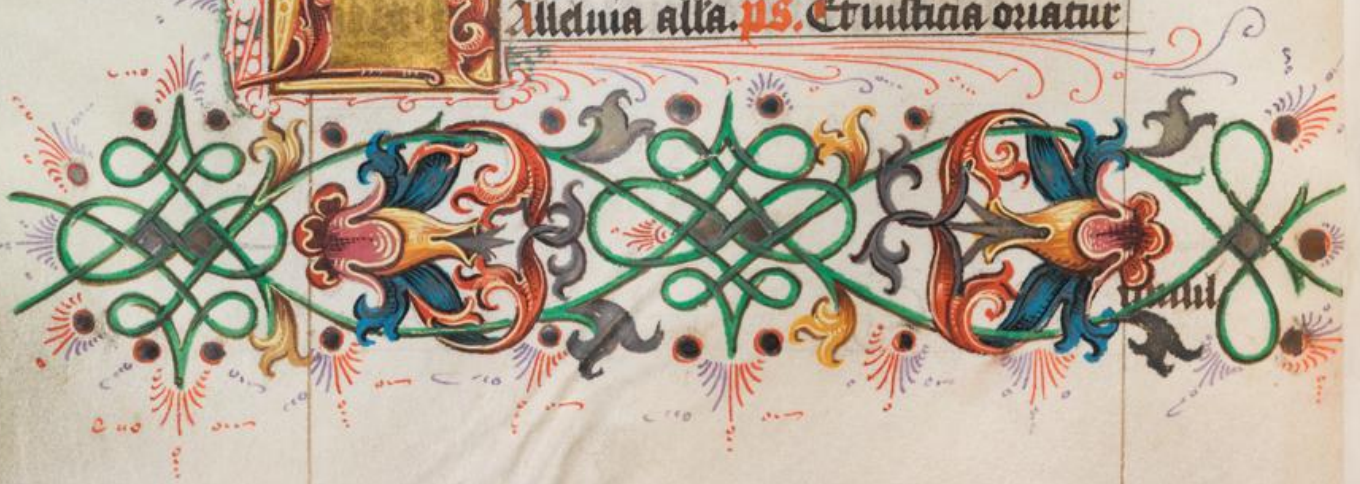 Alleluia all'a. ps. Et iusticia oriatur